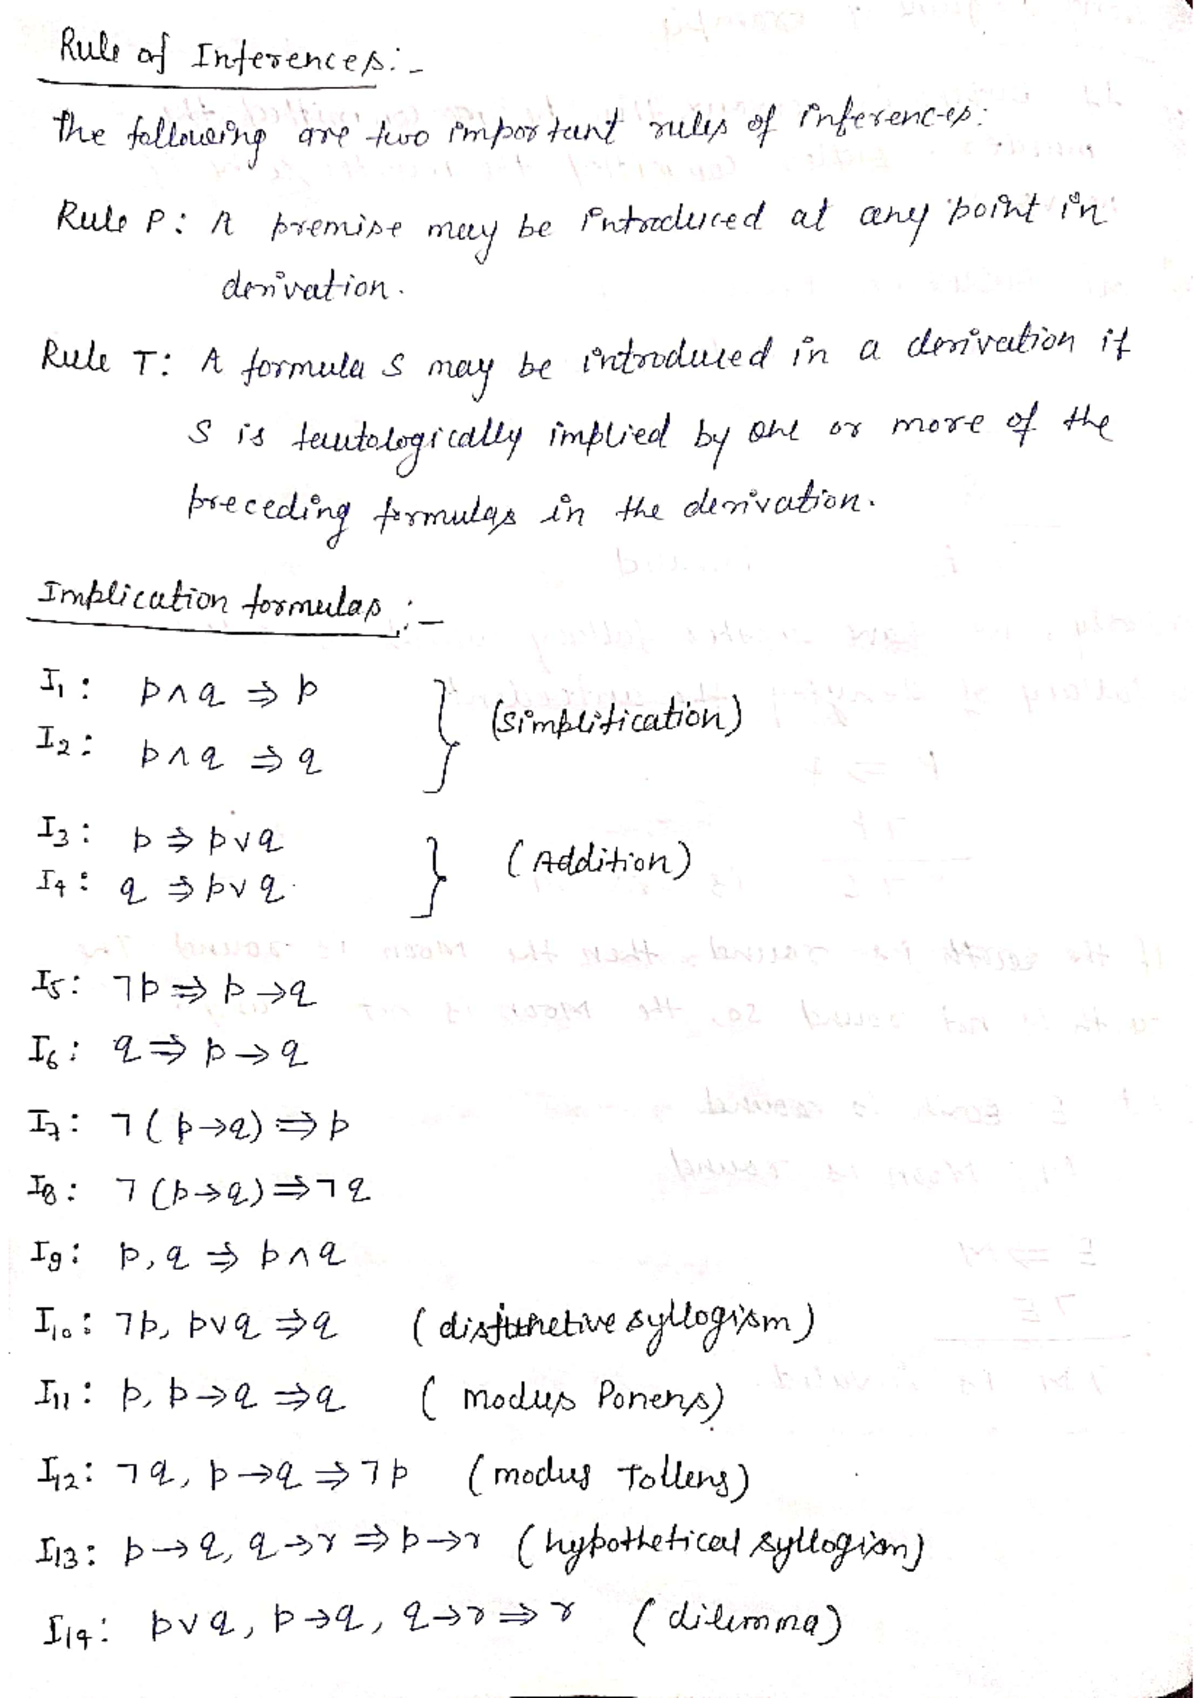 Rule of Inferences:-
The following are two important rules of inferences:
Rule P: A premise may be introduced at any point in
derivation.
Rule T: A formula S may be introduced in a derivation if
S is tautologically implied by one or more of the
preceding formulas in the derivation.
Implication formulas:-
I₁: p∧q ⇒ p
I₂: p∧q ⇒ q
(Simplification)
I₃: p ⇒ p∨q
I₄: q ⇒ p∨q
(Addition)
I₅: ¬p ⇒ p→q
I₆: q ⇒ p→q
I₇: ¬(p→q) ⇒ p
I₈: ¬(p→q) ⇒ ¬q
I₉: p, q ⇒ p∧q
I₁₀: ¬p, p∨q ⇒ q (disjunctive syllogism)
I₁₁: p, p→q ⇒ q (modus Ponens)
I₁₂: ¬q, p→q ⇒ ¬p (modus Tollens)
I₁₃: p→q, q→r ⇒ p→r (hypothetical syllogism)
I₁₄: p∨q, p→q, q→r ⇒ r (dilemma)